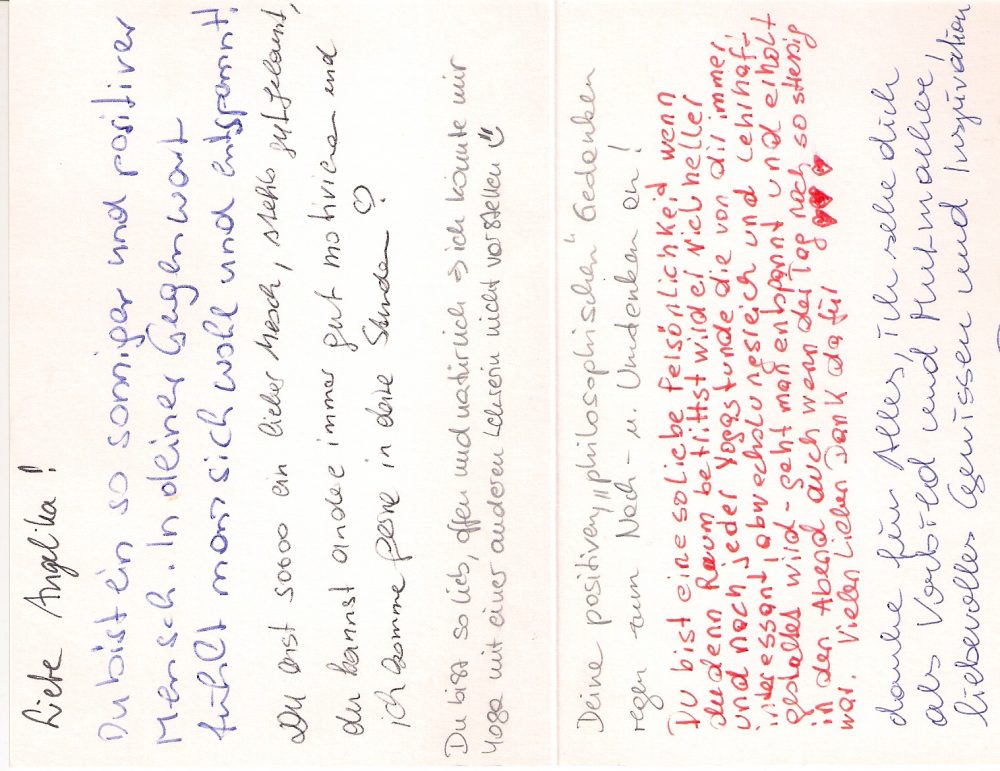 Liebe Angelika!
Du bist ein so sonniger und positiver
Mensch. In deiner Gegenwart
fühlt man sich wohl und entspannt!
Du bist soooo ein lieber Mesch, stehts gutgelaunt,
du kannst andere immer gut motivieren und
ich komme gerne in deine Stunden ♡
Du bist so lieb, offen und natürlich → ich könnte mir
Yoga mit einer anderen Lehrerin nicht vorstellen ☺
Deine positiven „philosophischen" Gedanken
regen zum Nach- u. Umdenken an!
Du bist eine so liebe Persönlichkeid wenn
du denn Raum betrittst wird er viel heller
und nach jeder Yogastunde die von dir immer,
interessant, abwechslungsreich und Lehrhaft
gestaltet wird - geht man entspannt und erholt
in den Abend auch wenn der Tag noch so stressig
war. Vielen Lieben Dank dafür ♥♥♥
danke für Alles, ich sehe dich
als Vorbild und Mutmacher,
liebevolles Gewissen und Inspiration